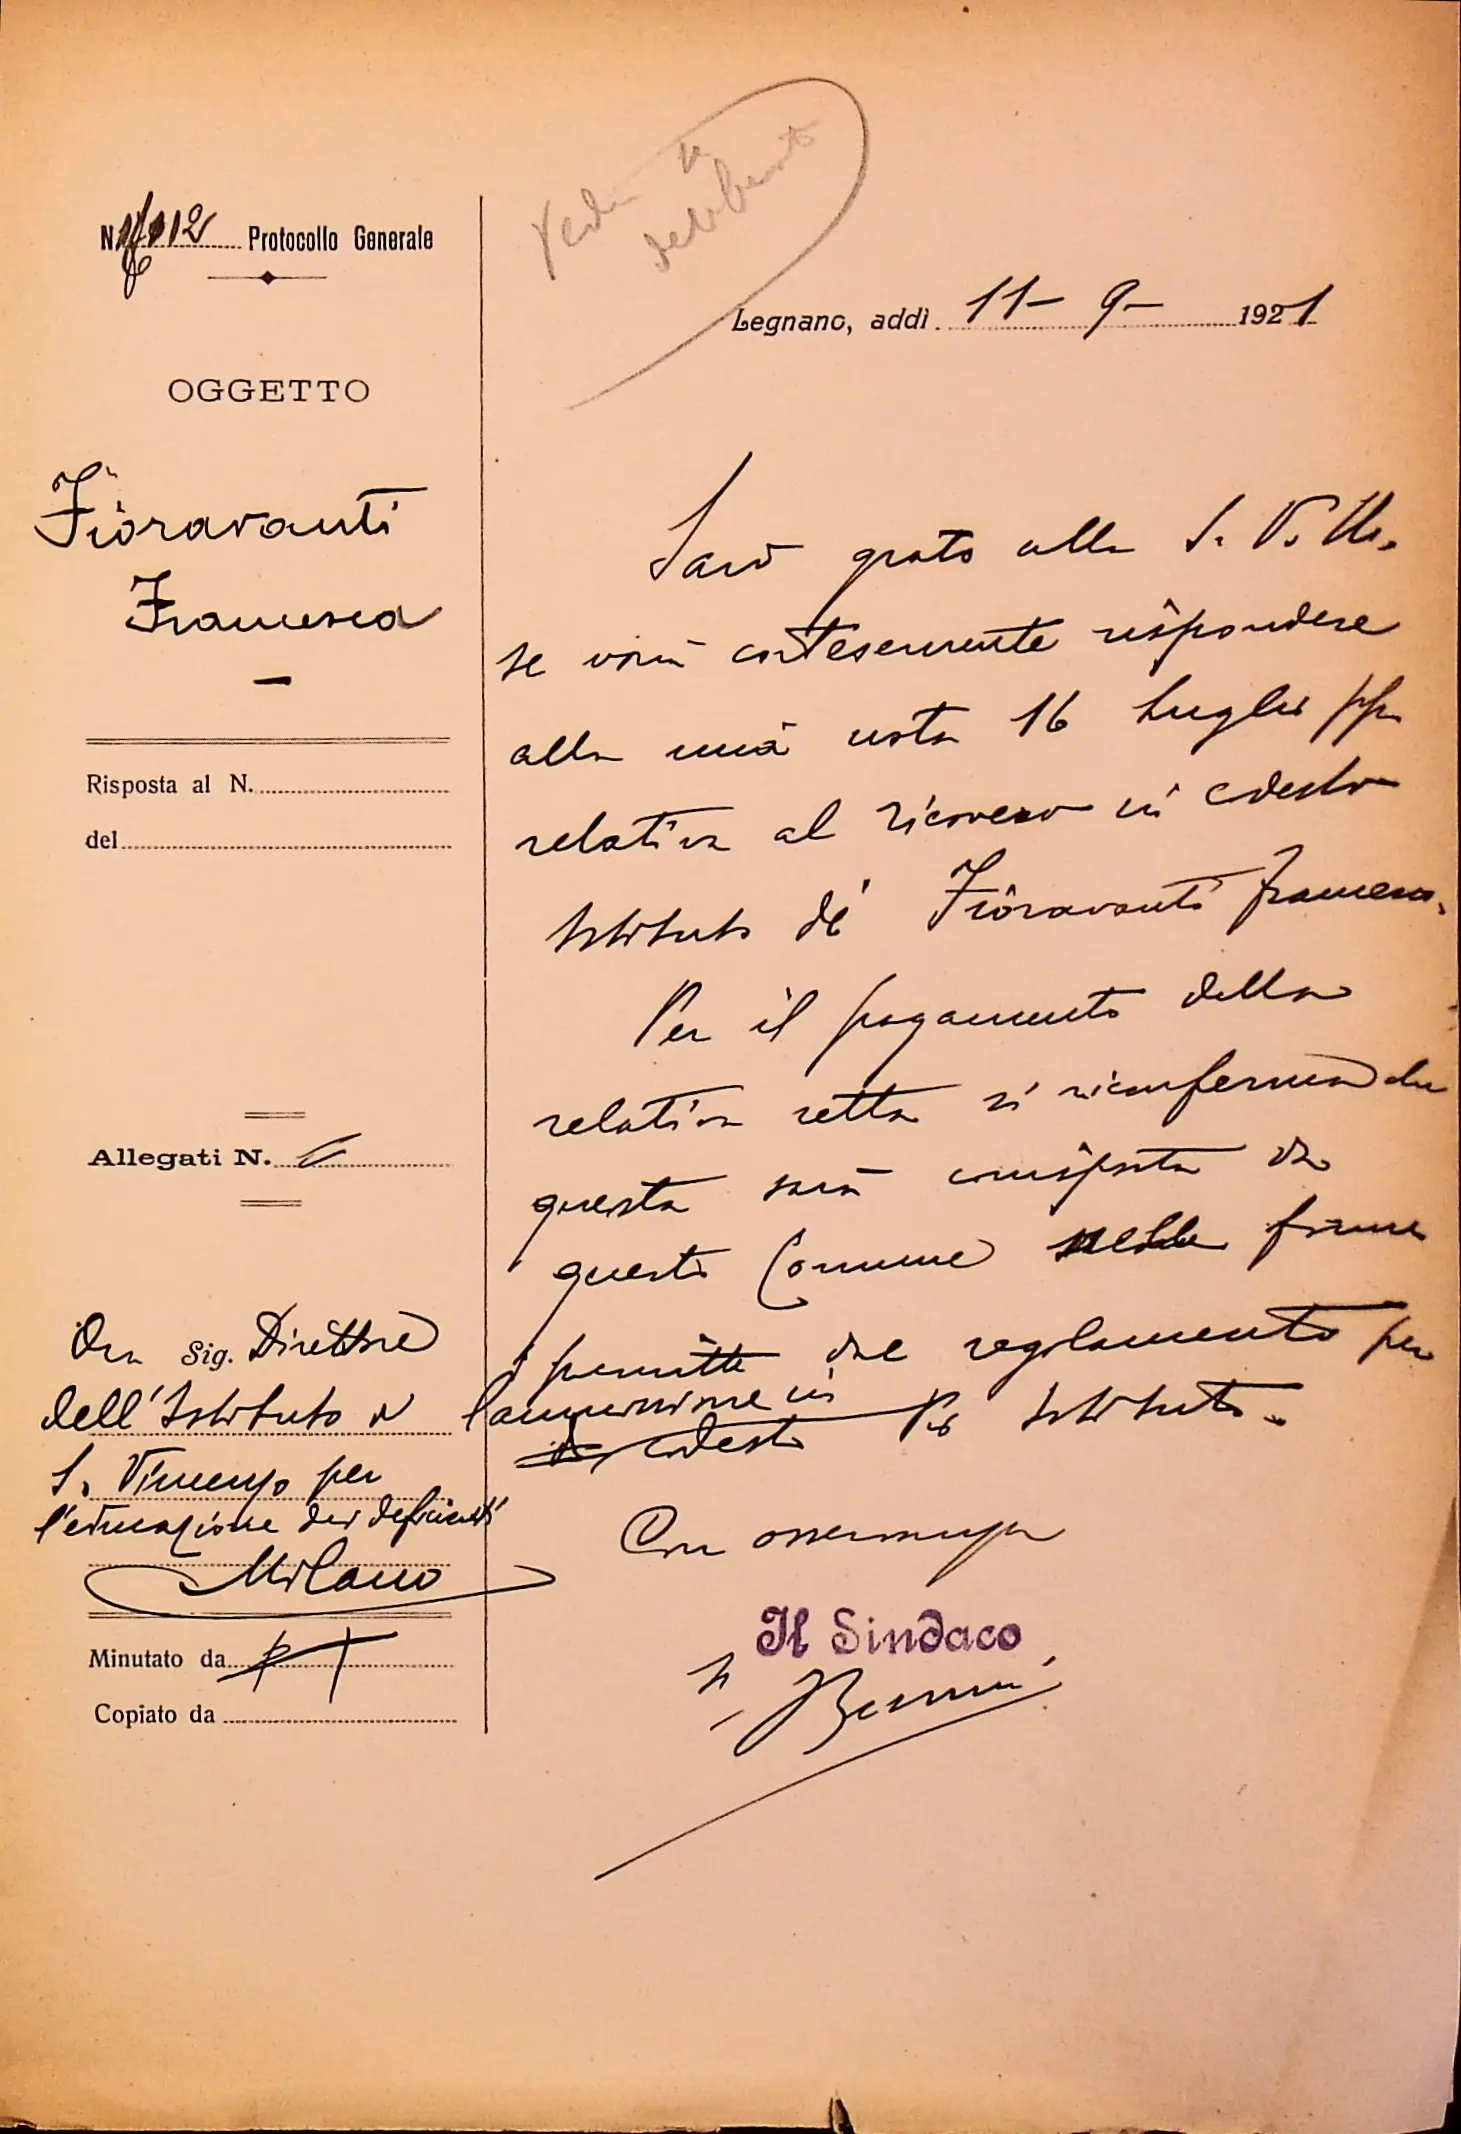 Protocollo Generale
OGGETTO
Fioravanti
Francesca
Risposta al N.
del
Allegati N.
On. Sig. Direttore
dell'Istituto di
S. Vincenzo per
l'educazione dei deficienti
Milano
Minutato da
Copiato da
Vedi
Legnano, addì 11-9-1921
Sarò grato alla S. V. Ill.
se vorrà cortesemente rispondere
alla mia nota 16 Luglio pp.
relativa al ricovero in codesto
Istituto di Fioravanti Francesca.
Per il pagamento della
relativa retta si riconferma che
questa sarà corrisposta da
questo Comune nelle forme
dal regolamento per
l'ammissione in
codesto Pio Istituto.
Con osservanza
Il Sindaco